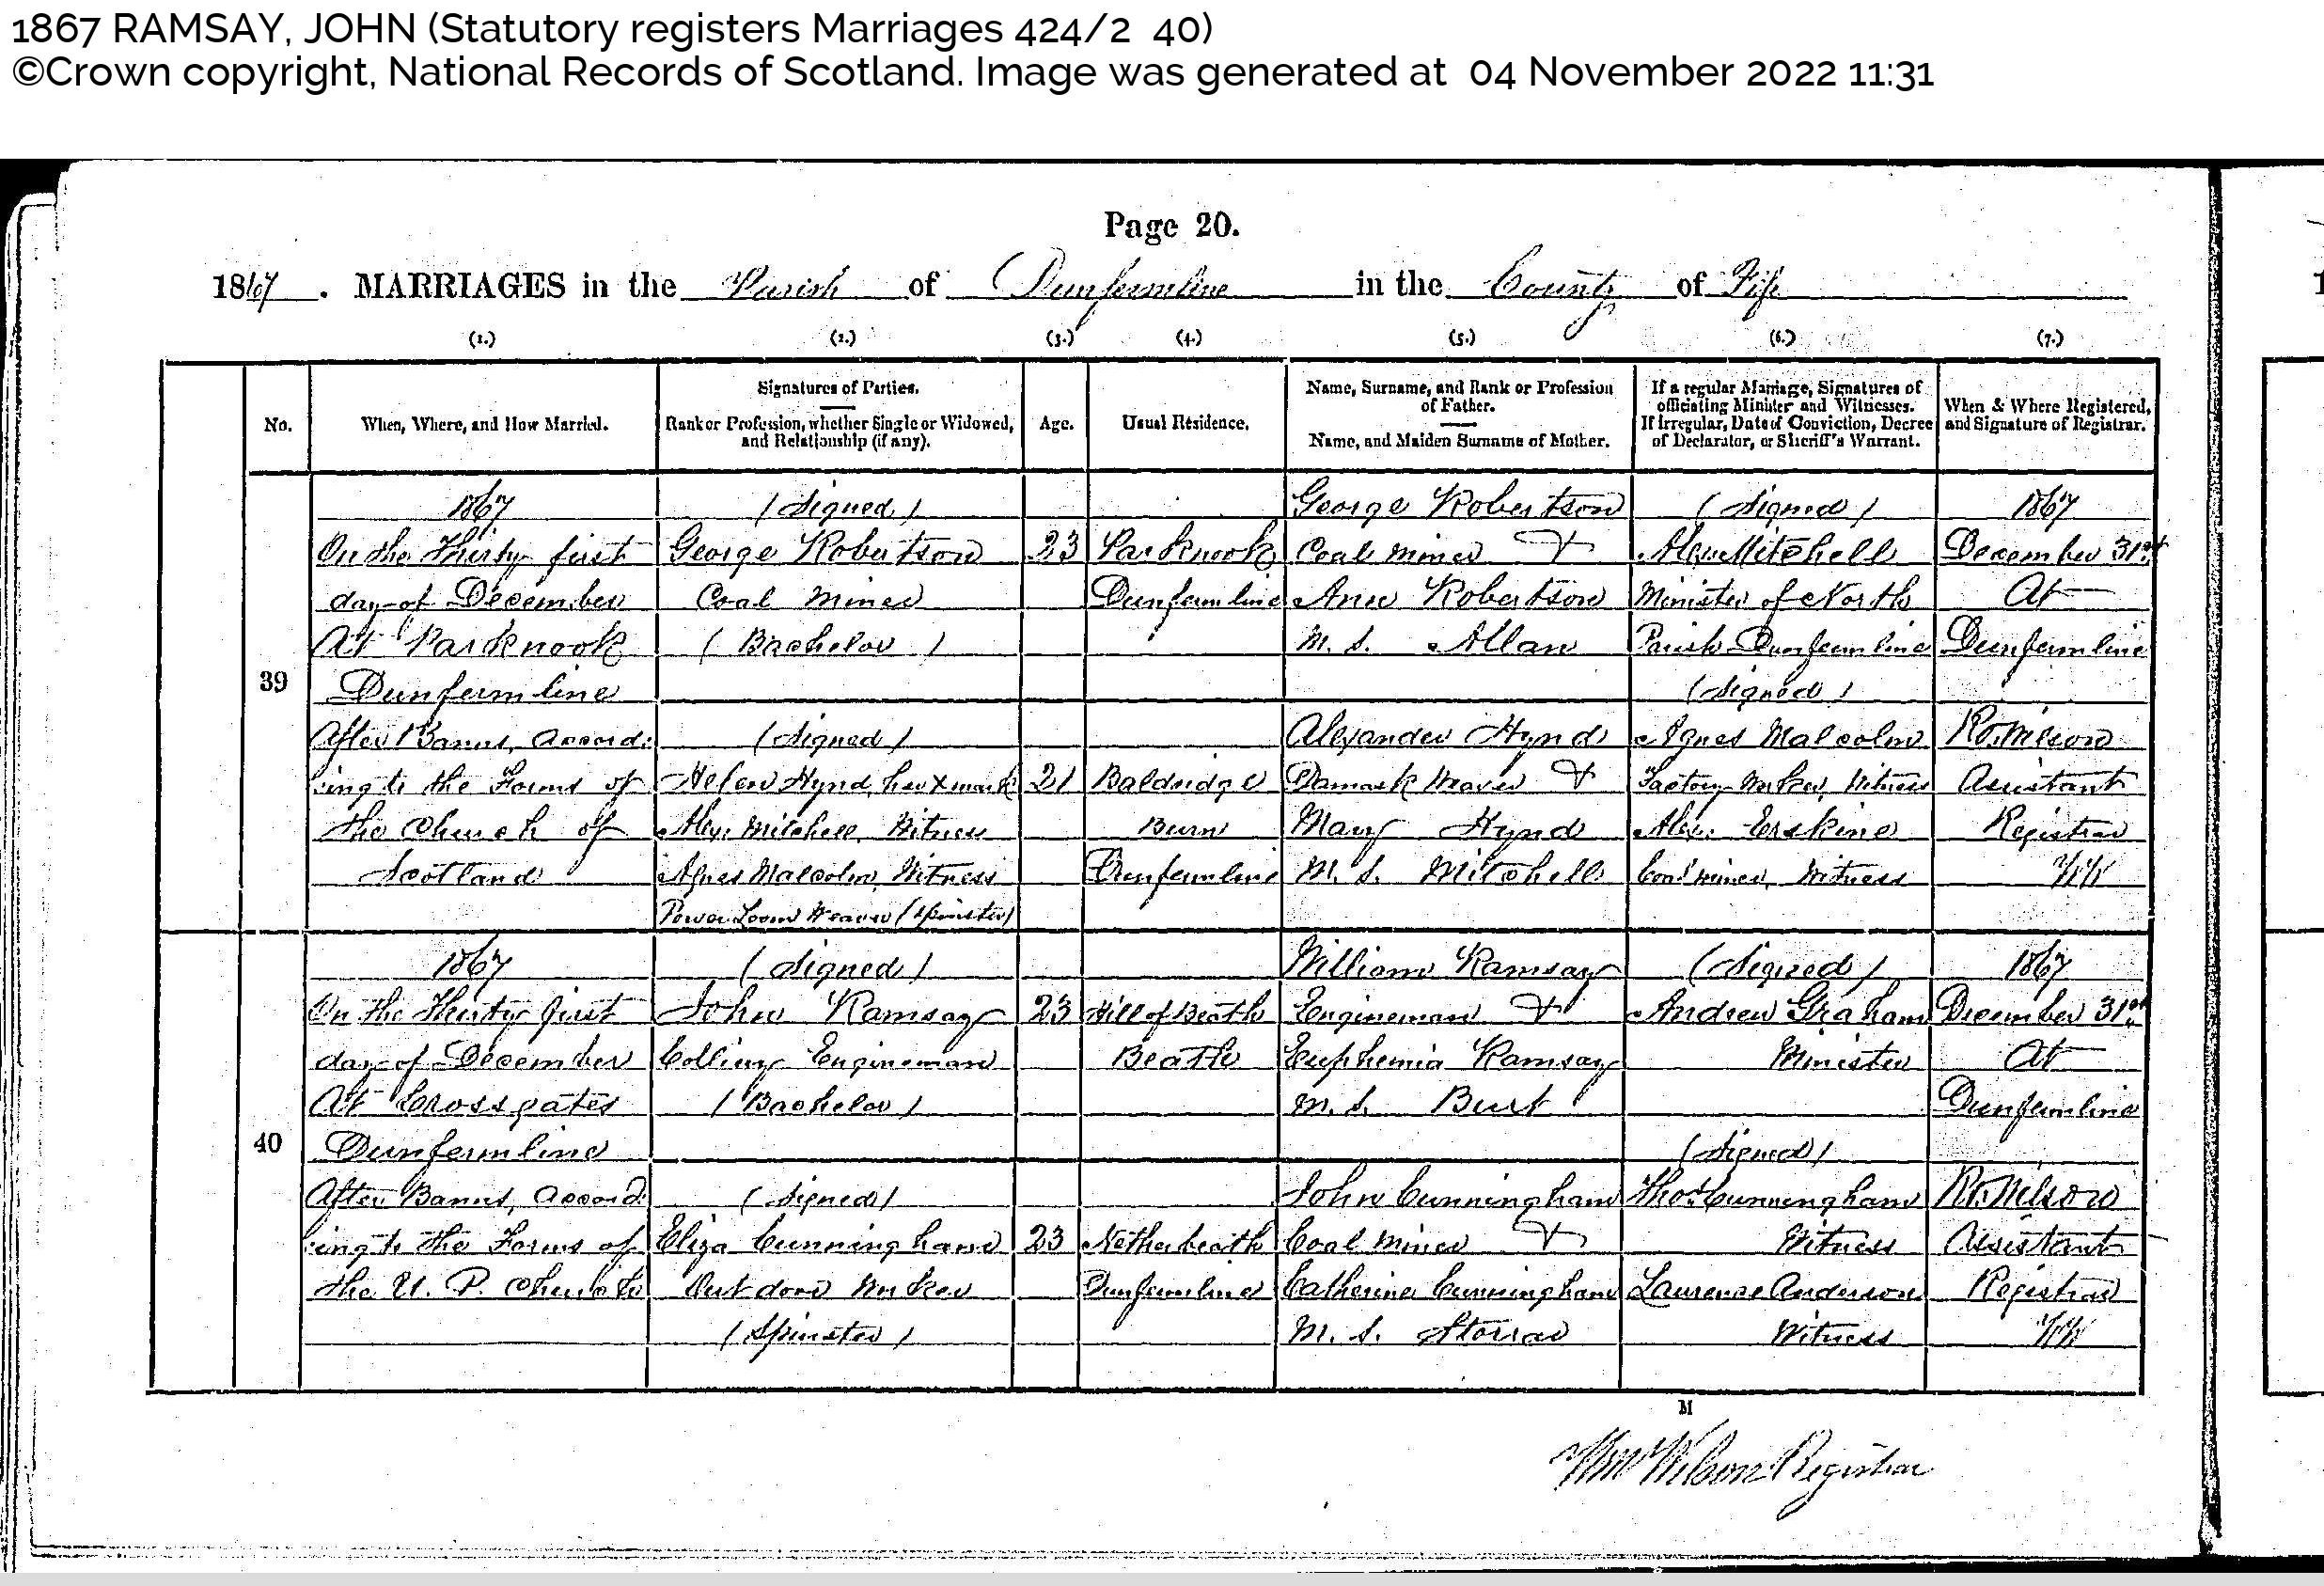 1867 RAMSAY, JOHN (Statutory registers Marriages 424/2 40)
©Crown copyright, National Records of Scotland. Image was generated at 04 November 2022 11:31
Page 20.
1867. MARRIAGES in the Parish of Dunfermline in the County of Fife
(1.) (2.) (3.) (4.) (5.) (6.) (7.)
No.
When, Where, and How Married.
Signatures of Parties.
Rank or Profession, whether Single or Widowed,
and Relationship (if any).
Age.
Usual Residence.
Name, Surname, and Rank or Profession
of Father.
Name, and Maiden Surname of Mother.
If a regular Marriage, Signatures of
officiating Minister and Witnesses.
If Irregular, Date of Conviction, Decree
of Declarator, or Sheriff's Warrant.
When & Where Registered,
and Signature of Registrar.
39
1867
On the Thirty first
day of December
At Parknook
Dunfermline
After Banns, accord:
:ing to the Forms of
the Church of
Scotland
(Signed)
George Robertson
Coal Miner
(Bachelor)
(Signed)
Helen Hynd, her x mark
Alexr Mitchell, Witness
Agnes Malcolm, Witness
Power Loom Weaver (Spinster)
23
21
Parknook
Dunfermline
Baldridge
Burn
Dunfermline
George Robertson
Coal Miner &
Ann Robertson
M. S. Allan
Alexander Hynd
Damask Weaver &
Mary Hynd
M. S. Mitchell
(Signed)
Alex. Mitchell
Minister of North
Parish Dunfermline
(Signed)
Agnes Malcolm
Factory Worker, Witness
Alexr Erskine
Coal miner, Witness
1867
December 31st
At
Dunfermline
Assistant
Registrar
WW
40
1867
On the Thirty first
day of December
At Crossgates
Dunfermline
After Banns, accord:
:ing to the Forms of
the U. P. Church
(Signed)
John Ramsay
Colliery Engineman
(Bachelor)
(Signed)
Eliza Cunningham
Out door Worker
(Spinster)
23
23
Hill of Beath
Beath
Netherbeath
Dunfermline
William Ramsay
Engineman &
Euphemia Ramsay
M. S. Burt
John Cunningham
Coal Miner &
Catherine Cunningham
M. S. Storrar
(Signed)
Andrew Graham
Minister
(Signed)
Thos. Cunningham
Witness
Laurence Anderson
Witness
1867
December 31st
At
Dunfermline
Assistant
Registrar
WW
M
Wm Wilson Registrar